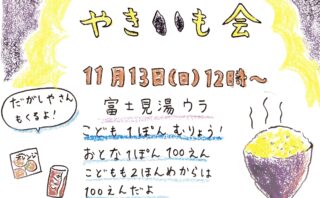 やきいも会
11月13日(日)12時〜
だがしやさん
もくるよ!
富士見湯ウラ
こども1ぽんむりょう!
おとな1ぽん100えん
こどもも2ほんめからは
100えんだよ